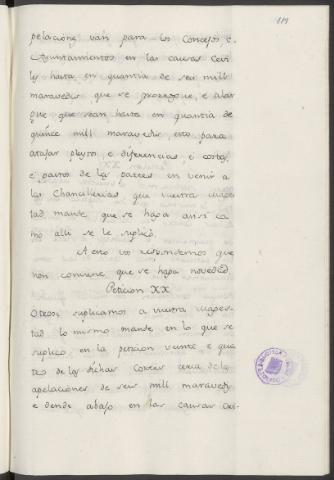 119
pelacione van para los Concejos, e
Ayuntamientos en las causas Cevi
les hasta en quantia de seis mill
maravedis que se prorogue, e alar
gue que sean hasta en quantia de
quince mill maravedis, esto para
atajar pleytos e diferencias, e costas,
e gastos de las partes en venir a
las Chancillerias que vuestra mages-
tad mande que se haga ansi co
mo alli se le suplicó.
A esto vos respondemos que
non conviene que se haga novedad
Peticion XX
Otrosi, suplicamos a vuestra mages-
tad lo mismo mande en lo que se
suplicó en la peticion veinte e qua
tro de las dichas Cortes cerca de las
apelaciones de seis mill maravedis
e dende abajo en las causas Ce-
BIBLIOTECA